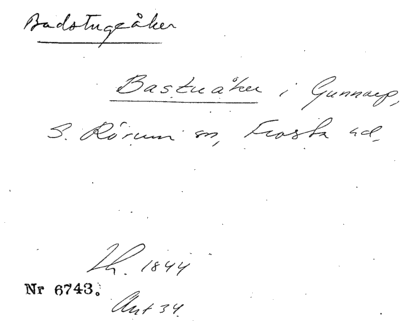 Badstugeåker
Bastuåker i Gunnarp,
S. Rörum sn, Frosta hd.
Lh. 1844
Nr 6743.
Ant 34.